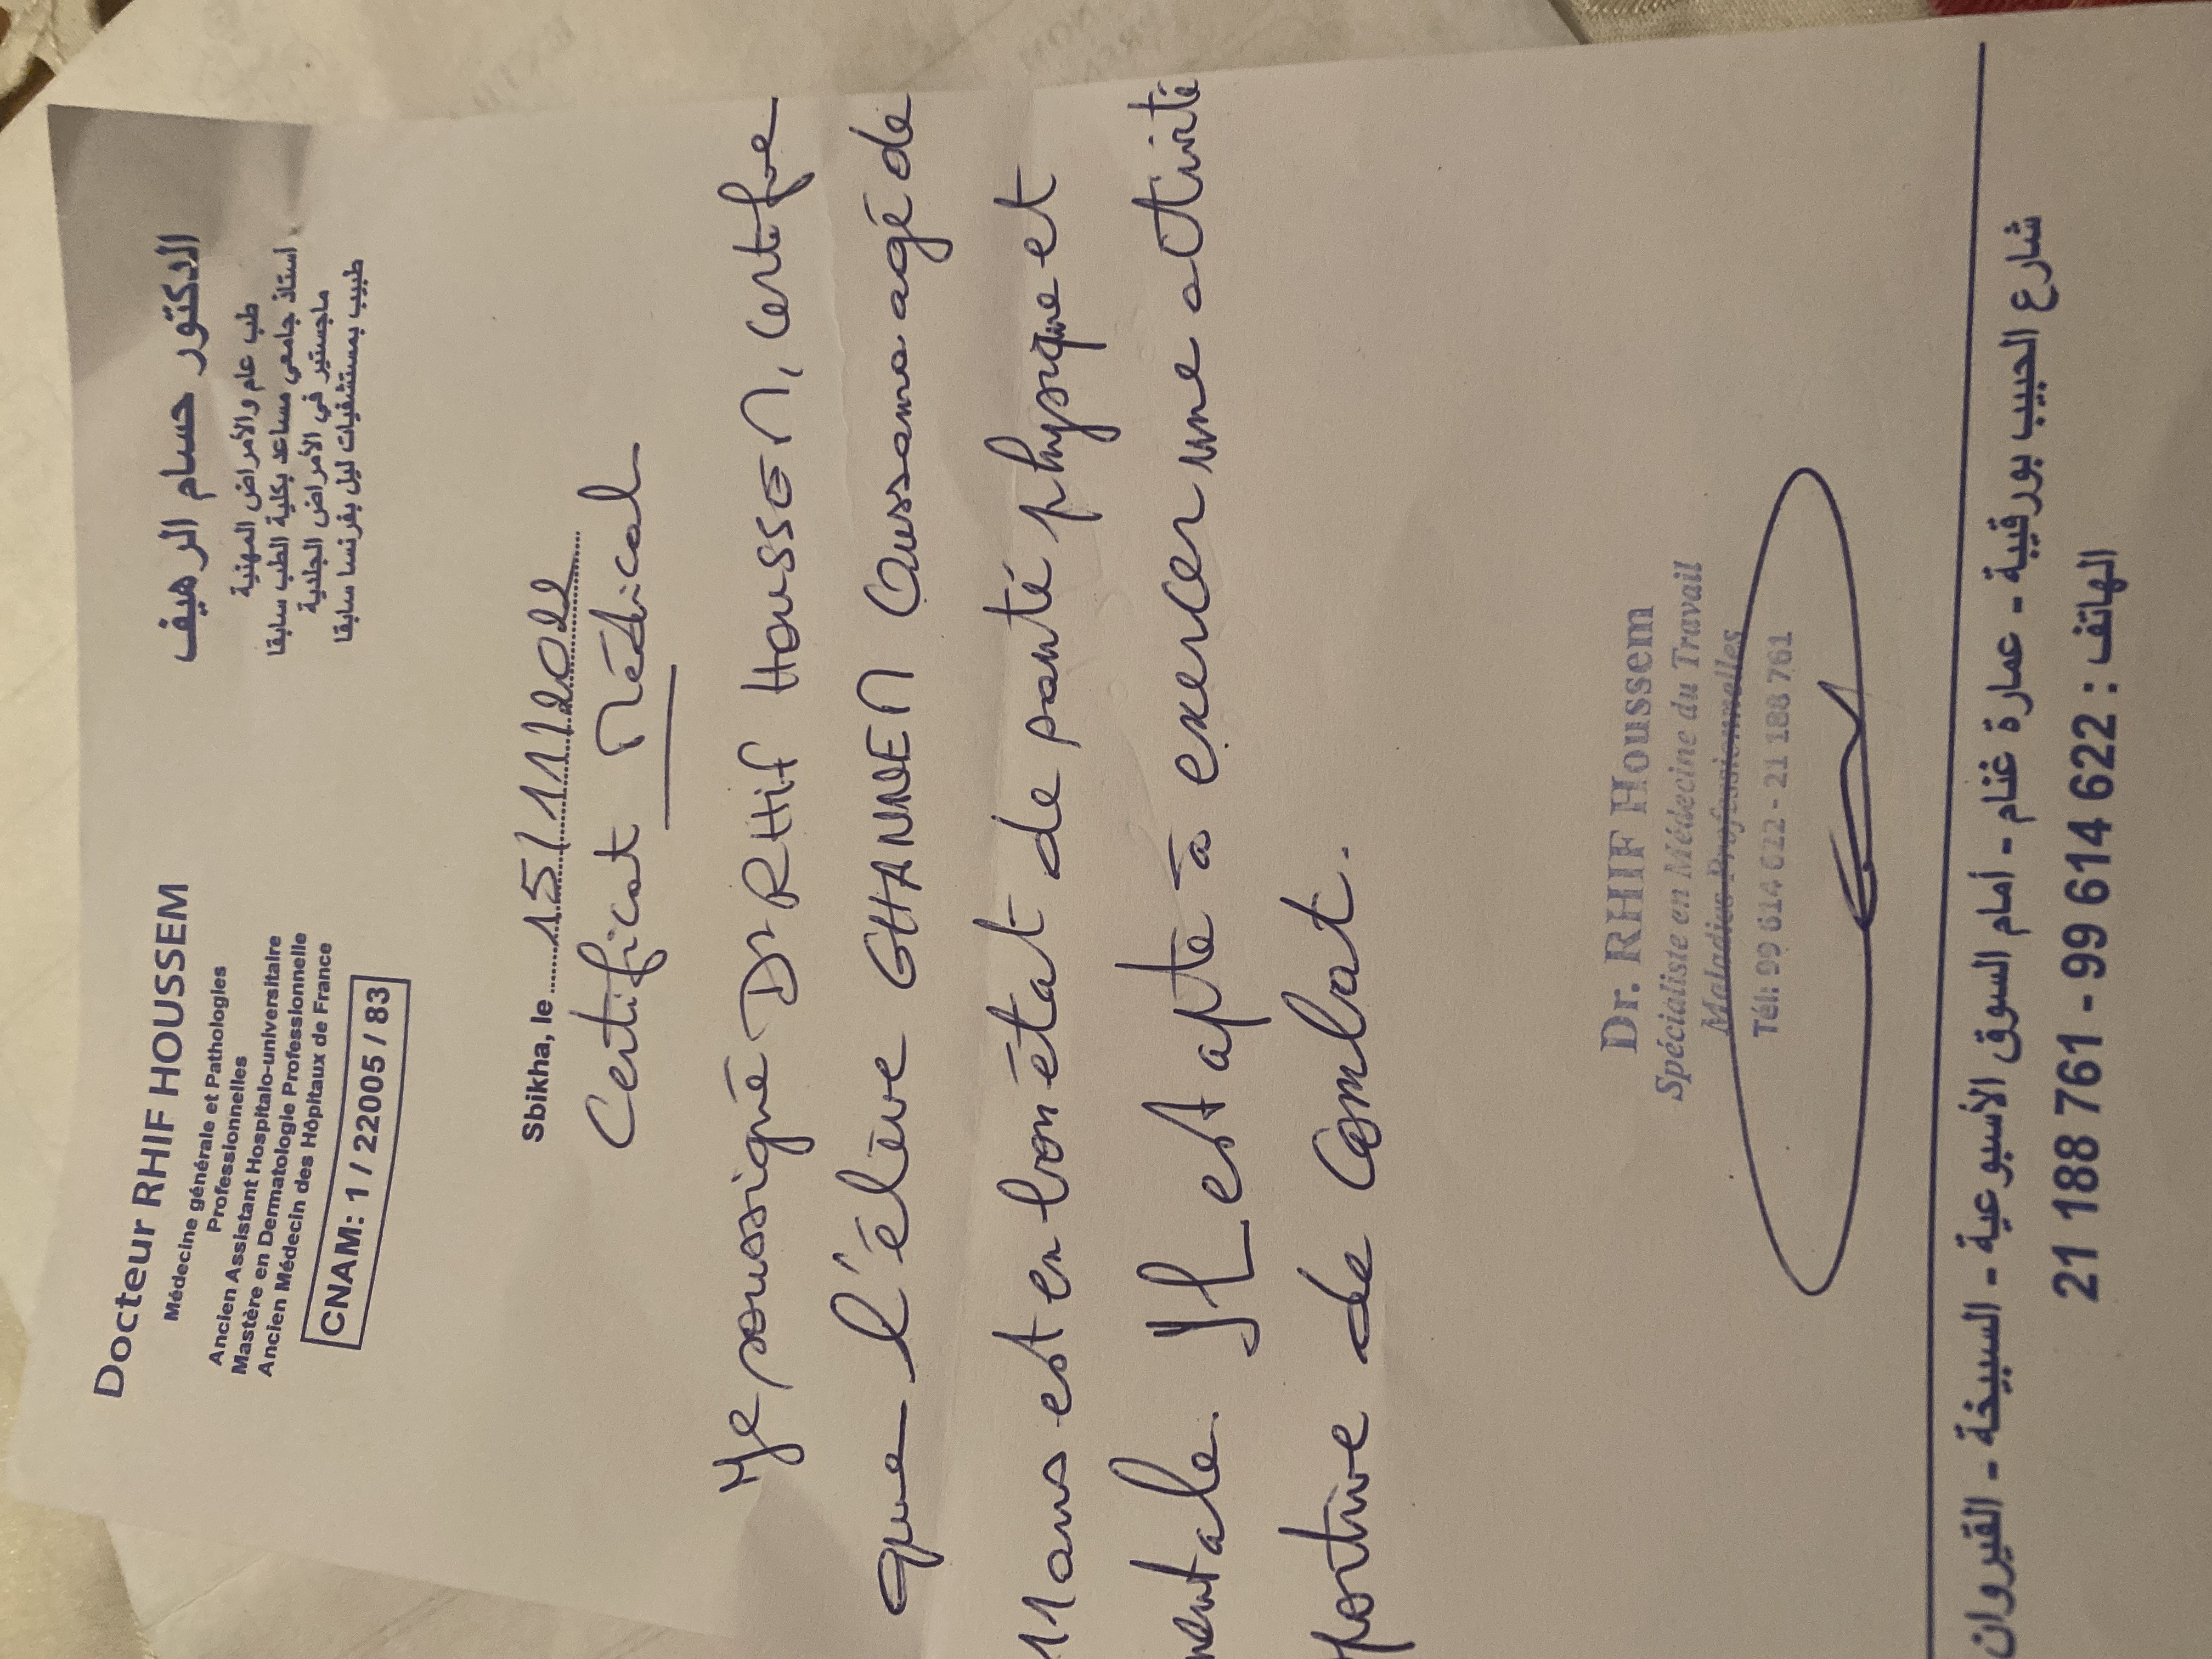 Docteur RHIF HOUSSEM
Médecine générale et Pathologies
Professionnelles
Ancien Assistant Hospitalo-universitaire
Mastère en Dermatologie Professionnelle
Ancien Médecin des Hôpitaux de France
CNAM: 1 / 22005 / 83
الدكتور حسام الرهيف
طب عام والأمراض المهنية
أستاذ جامعي مساعد بكلية الطب سابقا
ماجستير في الأمراض الجلدية
طبيب بمستشفيات ليل بفرنسا سابقا
Sbikha, le 15/11/2022
Certificat Médical
Je soussigné Dr RHIF HOUSSEM, certifie
que l'élève GHANNEM Oussama agé de
11 ans est en bon état de santé physique et
mentale. Il est apte à exercer une activité
sportive de Combat.
Dr. RHIF Houssem
Spécialiste en Médecine du Travail
Maladies Professionnelles
Tél: 99 614 622 - 21 188 761
شارع الحبيب بورقيبة - عمارة غنام - أمام السوق الأسبوعية - السبيخة - القيروان
الهاتف : 622 614 99 - 761 188 21